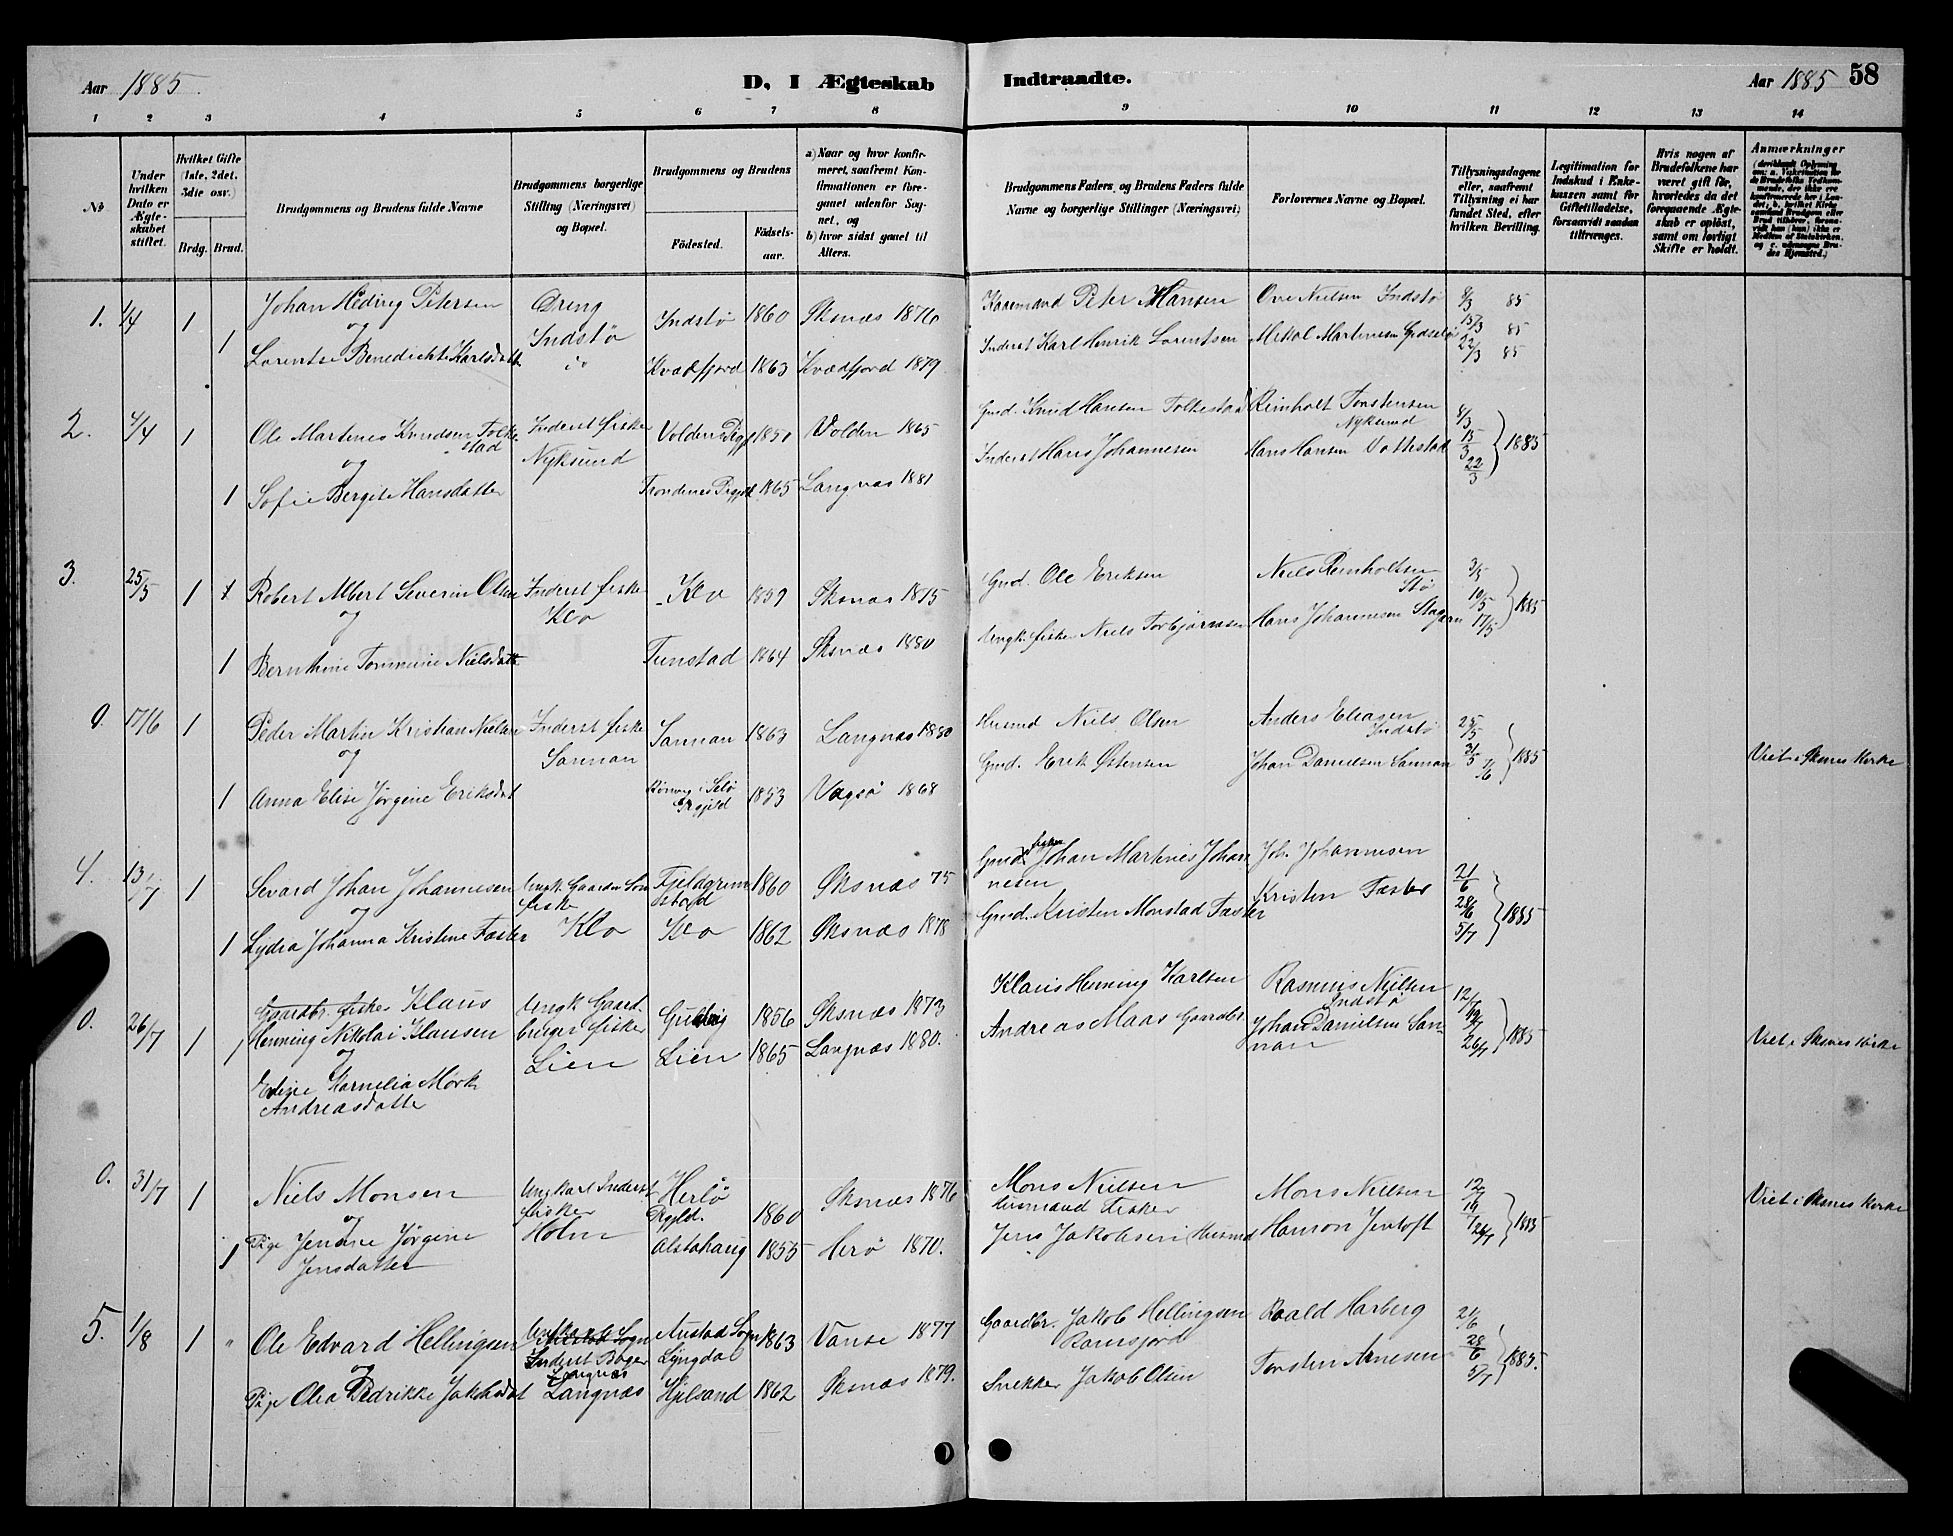 Aar 1885.
D, I Ægteskab
Indtraadte.
Aar 1885 58
1 2 3 4 5 6 7 8 9 10 11 12 13 14
No
Under hvilken Dato er Ægteskabet stiftet.
Hvilket Gifte (1ste, 2det, 3die osv.)
Brdg. Brud.
Brudgommens og Brudens fulde Navne
Brudgommens borgerlige Stilling (Næringsvei) og Bopæl.
Brudgommens og Brudens
Fødested.
Fødselsaar.
a) Naar og hvor konfirmeret, saafremt Konfirmationen er foregaaet udenfor Sognet, og
b) hvor sidst gaaet til Alters.
Brudgommens Faders, og Brudens Faders fulde Navne og borgerlige Stillinger (Næringsvei)
Forlovernes Navne og Bopæl.
Tillysningsdagene eller, saafremt Tillysning ei har fundet Sted, efter hvilken Bevilling.
Legitimation for Indskud i Enkekassen samt for Giftetilladelse, forsaavidt saadan tiltrænges.
Hvis nogen af Brudefolkene har været gift før, hvorledes da det foregaaende Ægteskab er opløst, samt om lovligt Skifte er holdt.
Anmærkninger
1. 1/4 1 Johan Hedevig Petersen Dreng Indstø 1860 Øksnæs 1876 Peter Hansen Ove Nielsen Indstø 8/3 85
og Indstø 15/3 85
1 Lorentse Benedichte Karlsdatt Kvædfjord 1863 Kvædfjord 1879 Inderst Karl Henrik Lorentsen Mikal Martinsen 22/3 85
2. 4/4 1 Ole Martines Knudsen Folkestad Inderst fisker Volden Prgj 1850 Volden 1865 Gmd. Knud Hansen Folkestad Reinholt Torstensen Nyksund 8/3
og Nyksund 15/3 1885
1 Sofie Bergite Hansdatter Trondenes Prgjeld 1865 Langnæs 1881 Inderst Hans Johannesen Hans Hansen 22/3
3. 25/5 1 Robert Albert Severin Olsen Inderst fisker Klo 1859 Øksnæs 1875 Gmd. Ole Eriksen Niels Reinholtsen Stø 3/5
og Klo 10/5 1885
1 Bernthine Tommine Nielsdatt Tunstad 1864 Øksnæs 1880 Ungk. fisker Niels Torbjørnsen Hans Johannesen 17/5
0. 17/6 1 Peder Martin Kristian Nielsen Inderst fisker Sannan 1863 Langnæs 1880 Husmd Niels Olsen Anders Eliasen Indstø 25/5
og Sannan 31/5 1885 Viet i Øksnes Kirke
1 Anna Elise Jørgine Eriksdat 1853 Vagsø 1868 Gmd. Erik Østensen Johan Danielsen Sannan 7/6
4. 13/7 1 Sevard Johan Johannesen Ungk Gaardm Søn fisker 1860 Øksnæs 75 Gmd. fisker Johan Martines Johannesen Joh. Johannesen 21/6
og Klo 28/6 1885
1 Lydia Johanna Kristine Fæster Klo 1862 Øksnæs 1878 Gmd. Kristen Monstad Fæster Kristen Fæster 5/7
0. 26/7 1 Gaardbr. fisker Klaus Henning Nikolai Klausen Ungk Gaardbruger fisker Lien 1856 Øksnæs 1873 Klaus Henning Karlsen Rasmus Nielsen Indstø 12/7
og 19/7 1885 Viet i Øksnes Kirke
1 Edine Karnelia Mørk Andreasdatte Lien 1865 Langnæs 1880. Andreas Maas Gaardbr. Johan Danielsen Sannan 26/7
0. 31/7 1 Niels Monsen Ungkarl Inderst fisker Holm Herlø Rgjld. 1860 Øksnæs 1876 Mons Nielsen Husmand Fisker Mons Nielsen 12/7
og 19/7 1885 Viet i Øksnes Kirke
1 Pige Jensine Jørgine Jensdatter Alstahaug 1855 Herø 1870. Jens Jakobsen Husmd Hanson Jentoft 26/7
5. 1/8 1 Ole Edvard Hellingsen Inderst Bøger Langnæs Austad Sogn Lyngdal 1863 Vanse 1877 Gaardbr. Jakob Hellingsen Ramsfjord Roald Harberg 21/6
og 28/6 1885.
Pige Olea Pedrikke Jakobsdat Langnæs Hjelsand 1862 Øksnæs 1879. Snekker Jakob Olsen Torsten Arnesen 5/7